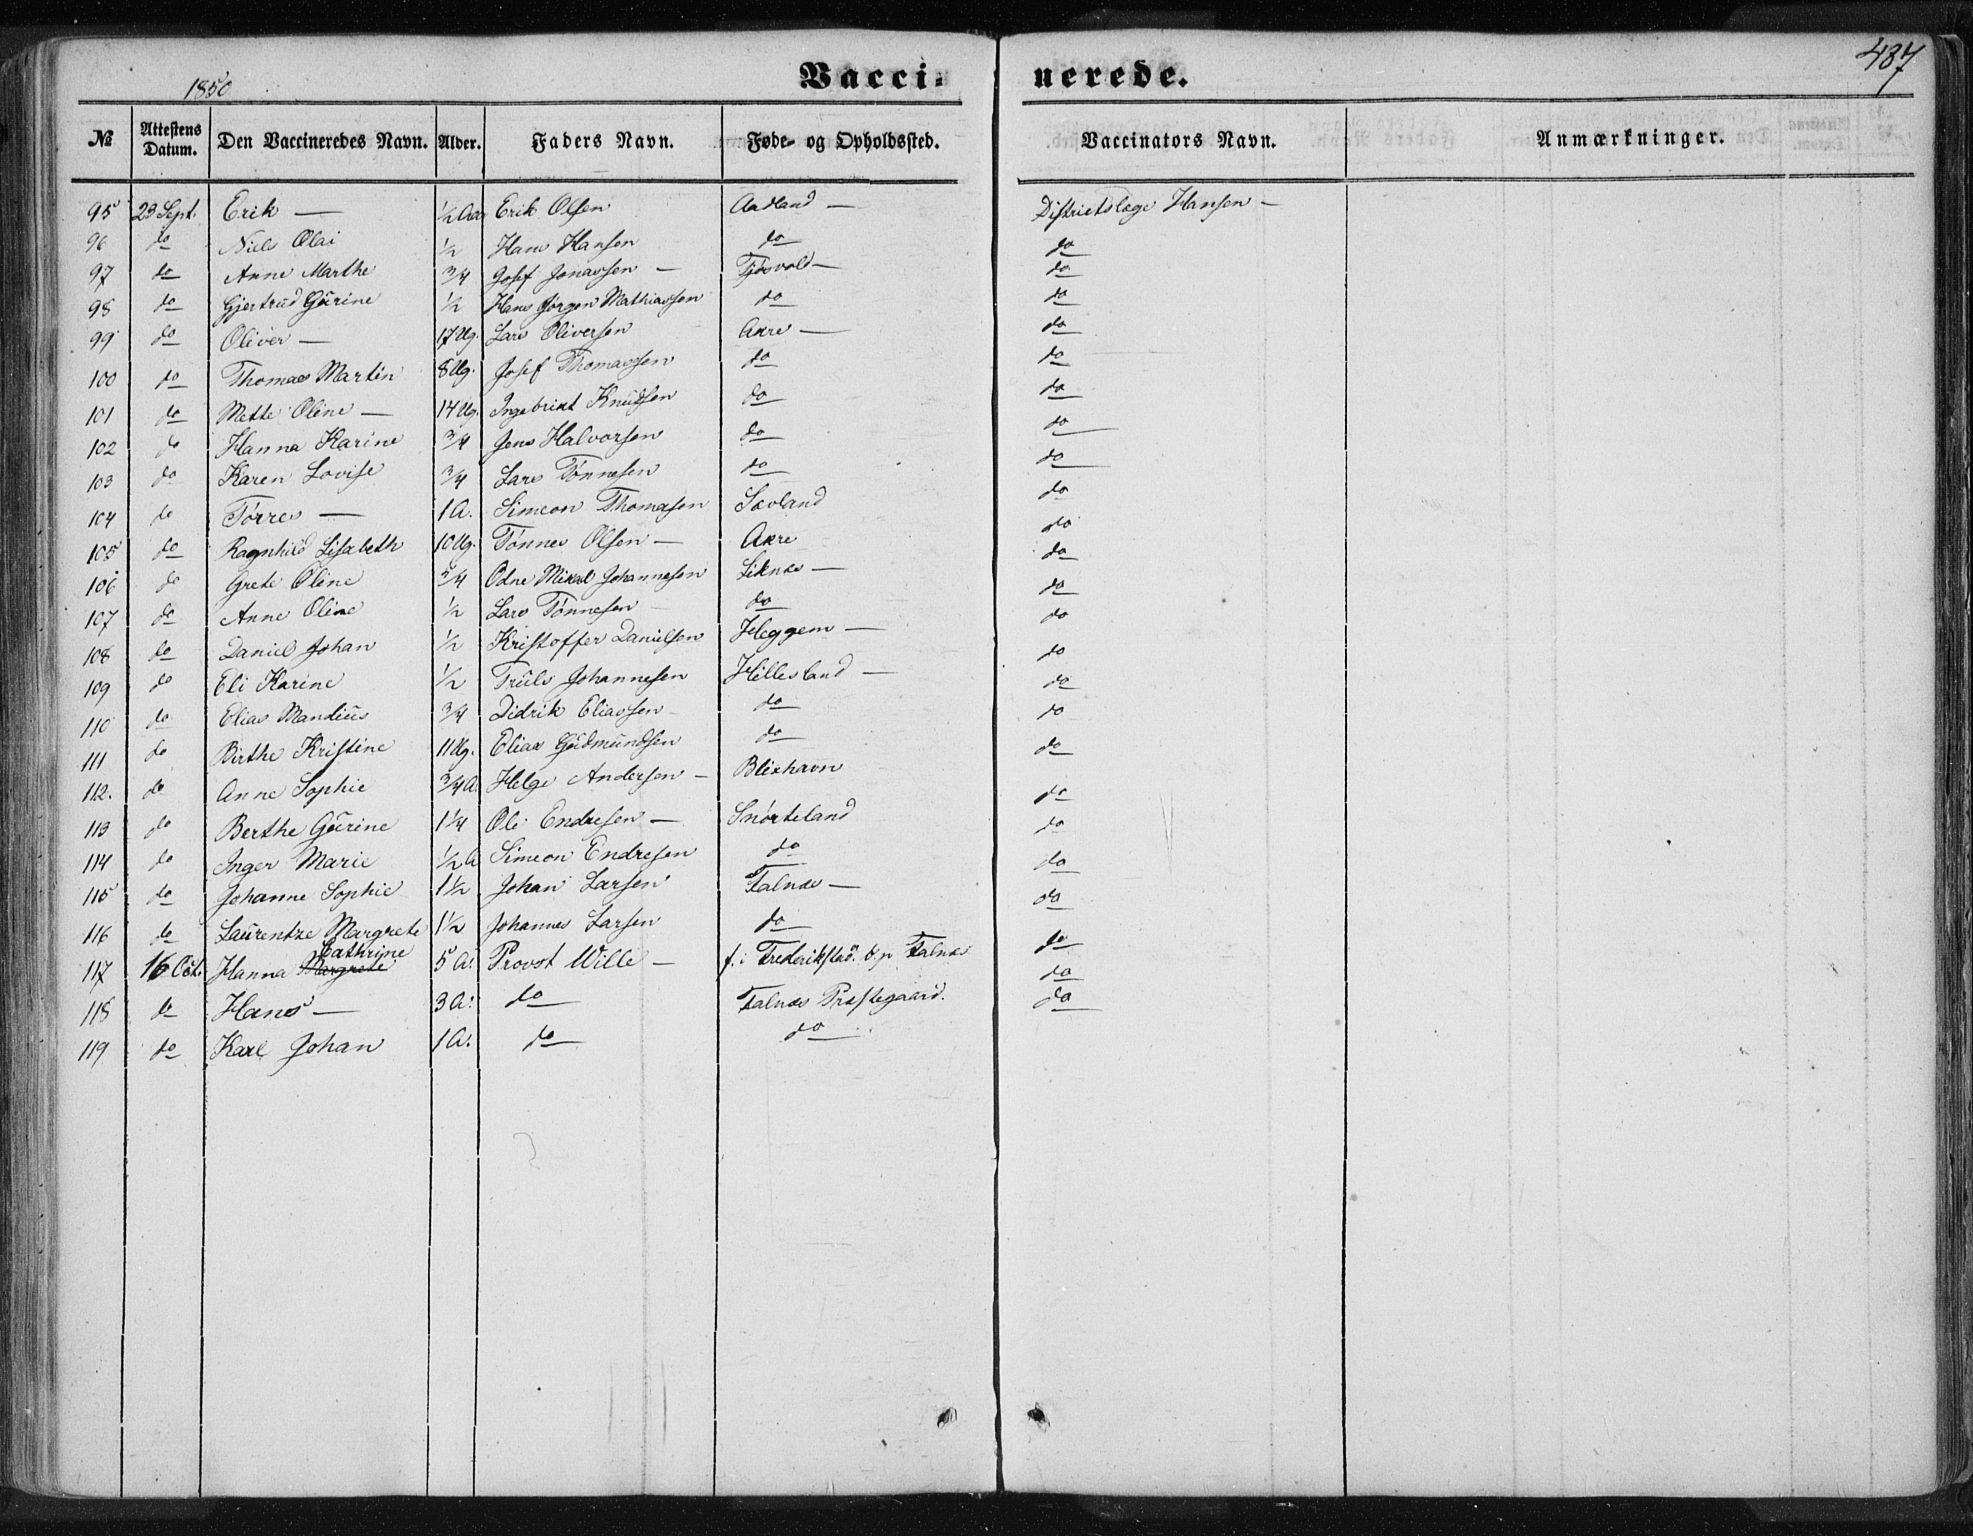 437
1850
Vacci- nerede.
№ Attestens Datum. Den Vaccineredes Navn. Alder. Faders Navn. Føde- og Opholdssted. Vaccinators Navn. Anmærkninger.
95 23 Sept. Erik — ½ Aar Erik Olsen Aadland — Distriktslæge Hansen —
96 do Niels Olai ½ Hans Hansen do do
97 do Anne Marthe ¾ Josef Jonassen — Tjøsvold — do
98 do Gjertrud Gürine ½ Hans Jørgen Mathiassen do do
99 do Oliver — 17 Ug. Lars Oliversen Akre — do
100 do Thomas Martin 8 Ug. Josef Thomassen do do
101 do Mette Oline — 14 Ug. Ingebrikt Knudsen do do
102 do Hanna Karine ¾ Jens Halvorsen do do
103 do Karen Lovise ¾ Lars Tønnesen do do
104 do Tørres — 1 A. Simeon Thomasen Sævland do
105 do Ragnhild Lisabeth 10 Ug. Tønnes Olsen — Akre do
106 do Grete Oline ¾ Odne Mikal Johannesen Liknes — do
107 do Anne Oline ½ Lars Tønnesen do do
108 do Daniel Johan ½ Kristoffer Danielsen Heggem — do
109 do Eli Karine ½ Truls Johannesen Hillesland — do
110 do Elias Mandius ¾ Didrik Eliassen do do
111 do Birthe Kristine 11 Ug. Elias Gudmundsen do do
112. do Anne Sophie ¾ A. Helge Andersen — Blixhavn do
113 do Berthe Gürine 1¼ Ole Endresen — Snørteland do
114 do Inger Marie ½ A Simeon Endresen do do
115 do Johanne Sophie 1½ Johan Larsen Falnæs — do
116 do Laurentze Margrete 1½ Johannes Larsen do do
Cathrine
117 16 Oct. Hanna Margrete 5 A. Provst Wille — f. i Frederikstad. b. p Falnæs do
118 do Hans — 3 A. do Falnæs Præstegaard. do
119 do Karl Johan 1 A. do do do